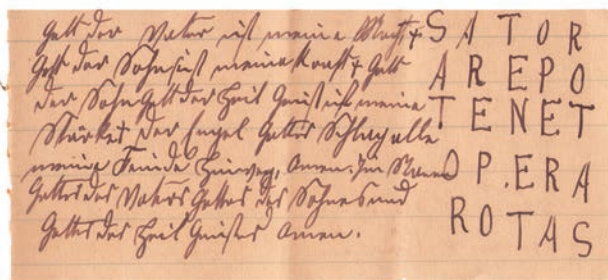 Gott der Vater ist meine Macht +
Gott der Sohn ist meine Kraft + Gott
der Sohn Gott der Heil Geist ist meine
Stärke + der Engel Gottes Schlag alle
meine Feinde hinweg, Amen. Im Namen
Gottes des Vaters Gottes des Sohnes und
Gottes des Heil Geistes Amen.
S A T O R
A R E P O
T E N E T
O P. E R A
R O T A S